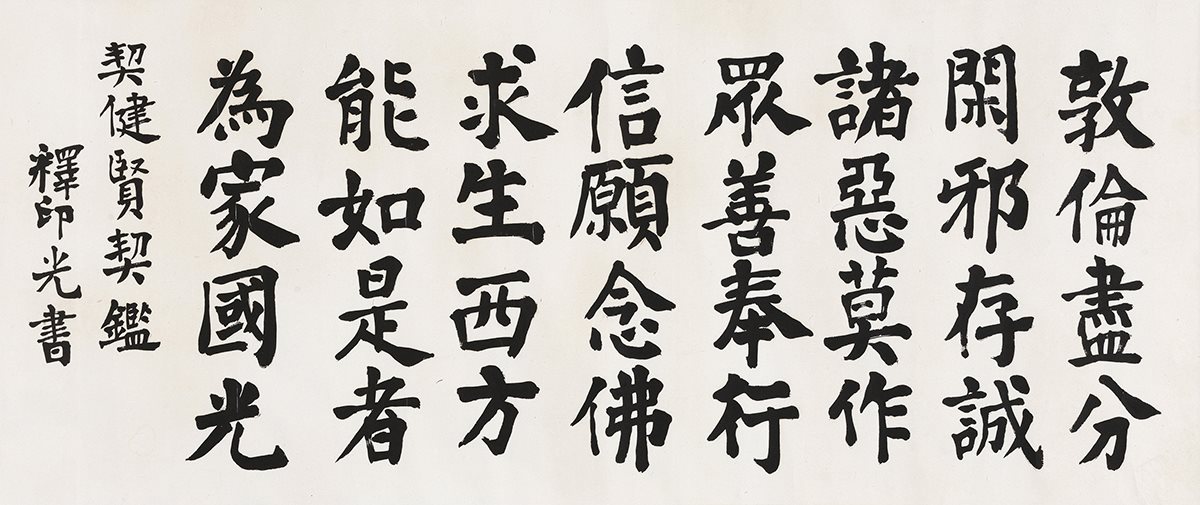 敦倫盡分
閑邪存誠
諸惡莫作
眾善奉行
信願念佛
求生西方
能如是者
為家國光
契健賢契鑑
釋印光書